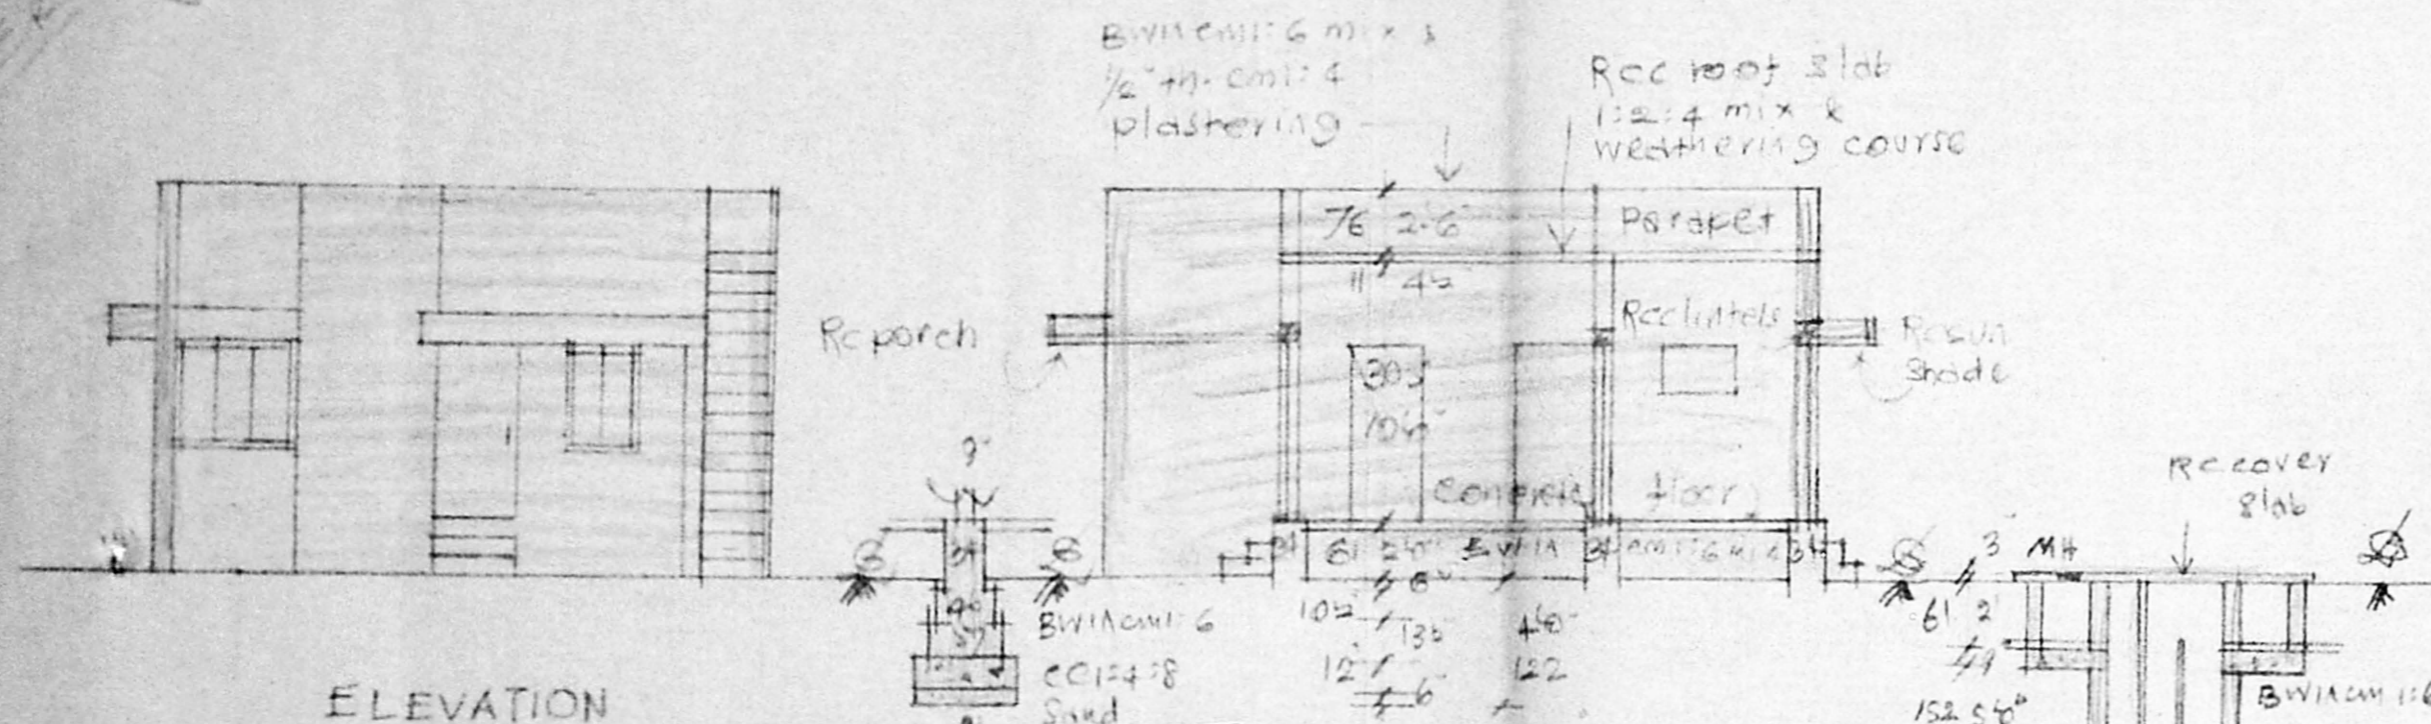 BWIN CM1:6 mix &
1/2" th. CM1:4
plastering
RCC roof slab
1:2:4 mix &
weathering course
76 2'6"
Parapet
11 4½"
RC porch
RCC lintels
RC sun
shade
305
10'0"
9"
Concrete floor
RC cover
slab
61 2'0" BWIN CM1:6 mix
3" MH
6"
61 2'
BWIN CM1:6
135
4'0"
12"
122
CC1:4:8
6"
Sand
152 5'0"
BWIN CM1:6
ELEVATION